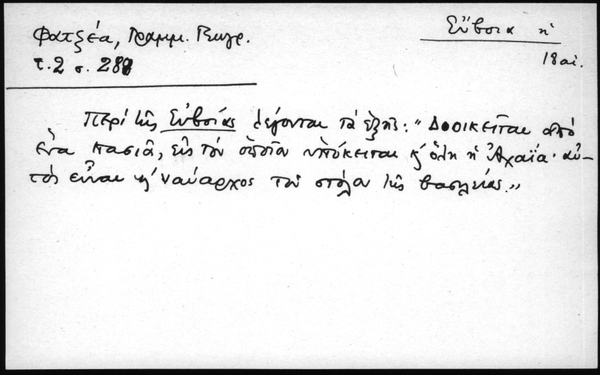 Φατζέα, Γραμμ. Γεωγρ.
τ. 2 σ. 287
Εὔβοια ἡ
18 αἰ.
Περί τῆς Εὐβοίας λέγονται τά ἑξῆς: "Διοικεῖται ἀπό
ἕνα πασιᾶ, εἰς τόν ὁποῖον ὑπόκειται κ' ὅλη ἡ Ἀχαΐα· αὐ-
τός εἶναι κ' ναύαρχος τοῦ στόλου τῆς βασιλείας."